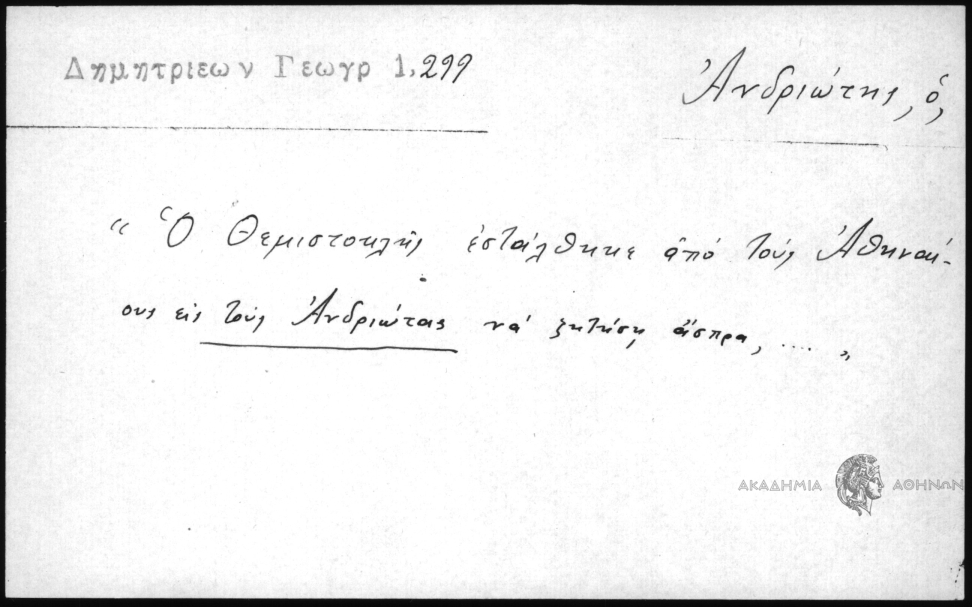 Δημητριεων Γεωγρ 1, 299
Ἀνδριώτης, ὁ,
“ Ὁ Θεμιστοκλῆς ἐστάλθηκε ἀπὸ τοὺς Ἀθηναί-
ους εἰς τοὺς Ἀνδριώτας νὰ ζητήσῃ ἄσπρα, .... „
ΑΚΑΔΗΜΙΑ ΑΘΗΝΩΝ